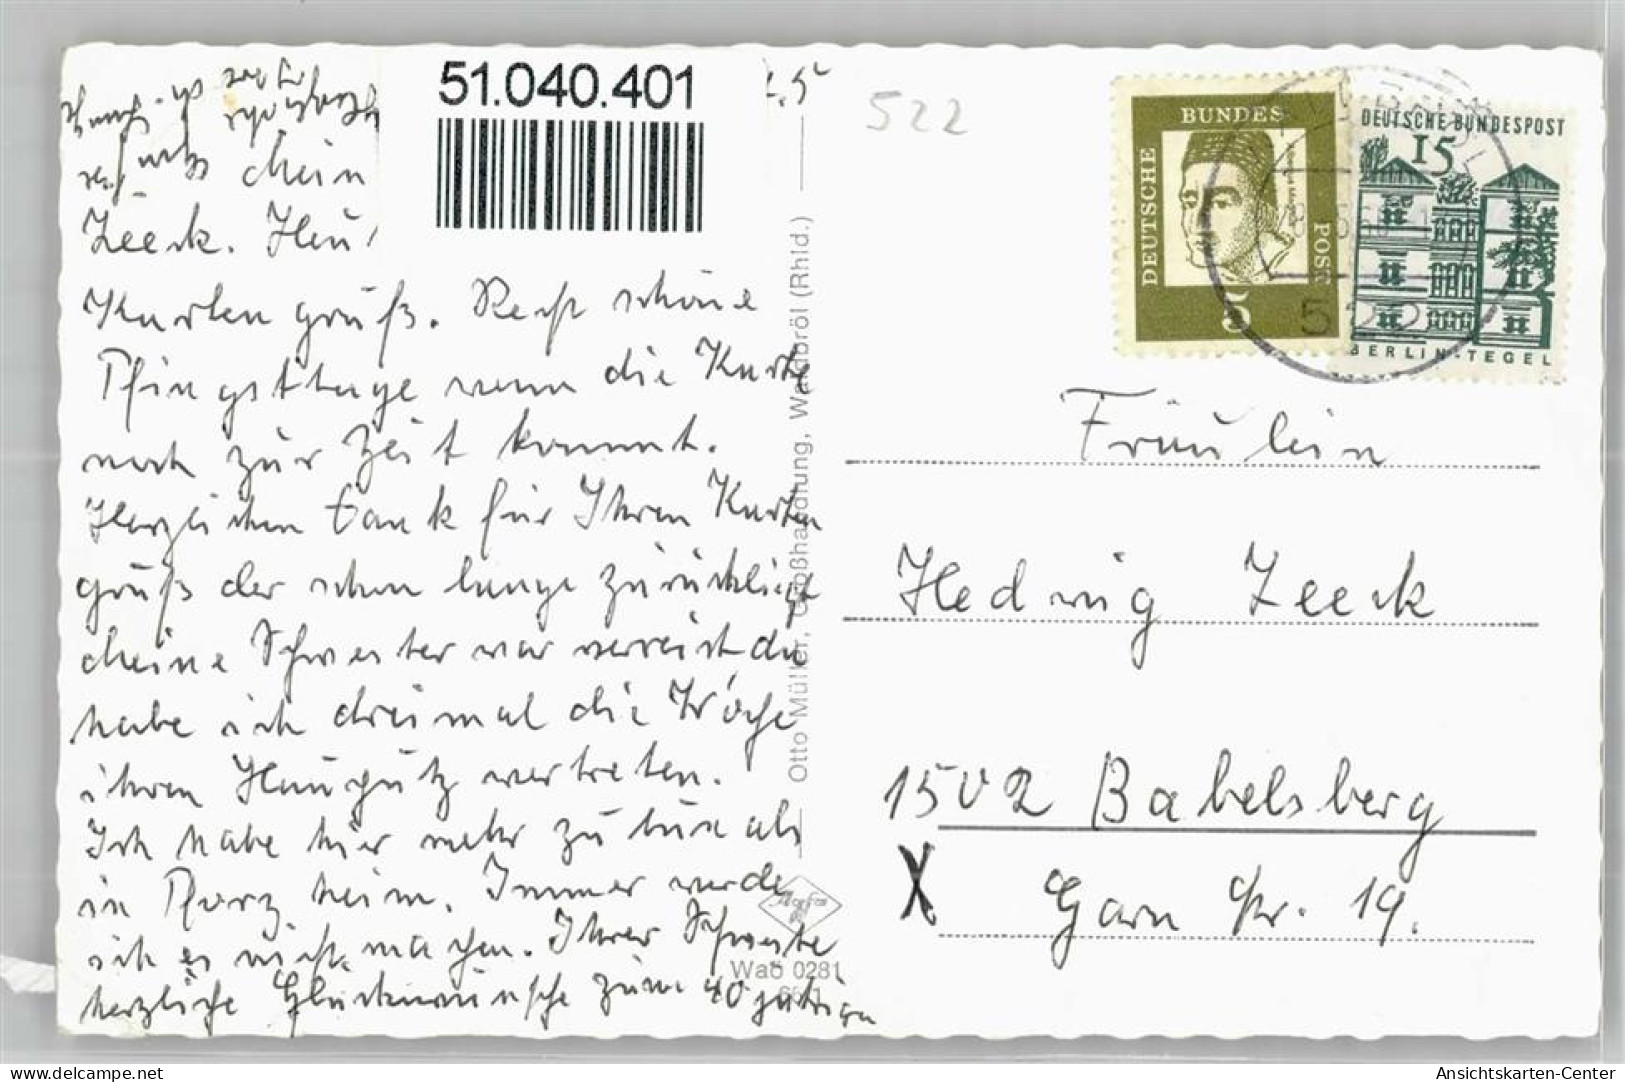 51.040.401
Mein
Zeeck. Heu
Kartengruß. Recht schöne
Pfingsttage wenn die Karte
noch zur Zeit kommt.
Herzlichen Dank für Ihren Karten
gruß der schon lange zurückliegt
Meine Schwester war verreist da
habe ich dreimal die Woche
ihren Hausputz vertreten.
Ich habe hier mehr zu tun als
in Pforzheim. Immer werde
ich es nicht machen. Ihrer Schweste
herzliche Glückwünsche zum 40 jährigen
Otto Müller, Großhandlung, Waldbröl (Rhld.)
Waö 0281
522
DEUTSCHE BUNDESPOST
5
DEUTSCHE BUNDESPOST
15
BERLIN-TEGEL
522
Fräulein
Hedwig Zeeck
1502 Babelsberg
X Garn Str. 19.
www.delcampe.net
Ansichtskarten-Center